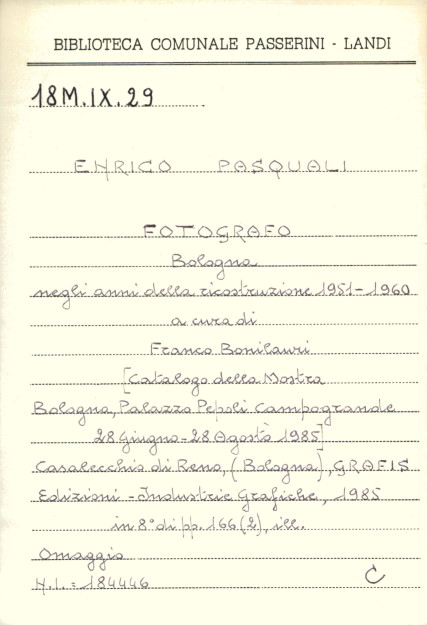 BIBLIOTECA COMUNALE PASSERINI - LANDI
18M.IX.29
ENRICO PASQUALI
FOTOGRAFO
Bologna
negli anni della ricostruzione 1951-1960
a cura di
Franco Bonilauri
[Catalogo della Mostra
Bologna, Palazzo Pepoli Campogrande
28 Giugno-28 Agosto 1985]
Casalecchio di Reno, (Bologna), GRAFIS
Edizioni - Industrie Grafiche, 1985
in 8° di pp. 166(2), ill.
Omaggio
N.I.= 184446
C